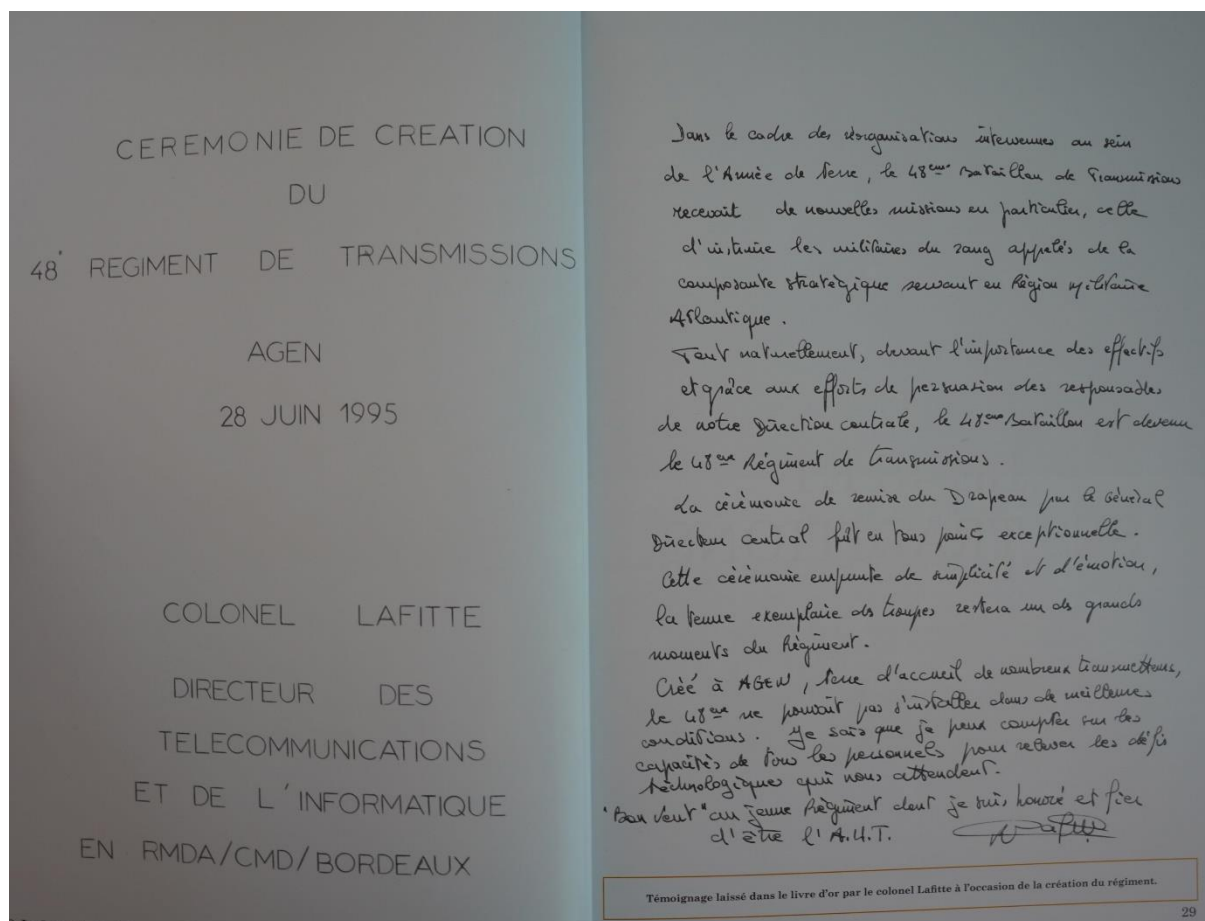 CEREMONIE DE CREATION
DU
48° REGIMENT DE TRANSMISSIONS
AGEN
28 JUIN 1995
COLONEL LAFITTE
DIRECTEUR DES
TELECOMMUNICATIONS
ET DE L'INFORMATIQUE
EN RMDA/CMD/BORDEAUX
Dans le cadre des réorganisations intervenues au sein
de l'Armée de Terre, le 48ème Bataillon de Transmissions
recevait de nouvelles missions en particulier, celle
d'instruire les militaires du rang appelés de la
composante stratégique servant en Région militaire
Atlantique.
Tout naturellement, devant l'importance des effectifs
et grâce aux efforts de persuasion des responsables
de notre Direction centrale, le 48ème Bataillon est devenu
le 48ème Régiment de transmissions.
La cérémonie de remise du Drapeau par le Général
Directeur central fût en tous points exceptionnelle.
Cette cérémonie empunte de simplicité et d'émotion,
la tenue exemplaire des troupes restera un des grands
moments du Régiment.
Créé à AGEN, terre d'accueil de nombreux transmetteurs,
le 48ème ne pouvait pas s'installer dans de meilleures
conditions. Je sais que je peux compter sur les
capacités de tous les personnels pour relever les défis
technologiques qui nous attendent.
"Bon vent" au jeune Régiment dont je suis honoré et fier
d'être l'A.H.T.
Témoignage laissé dans le livre d'or par le colonel Lafitte à l'occasion de la création du régiment.
29